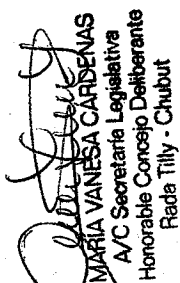 MARIA VANESA CARDENAS
A/C Secretaría Legislativa
Honorable Concejo Deliberante
Rada Tilly - Chubut